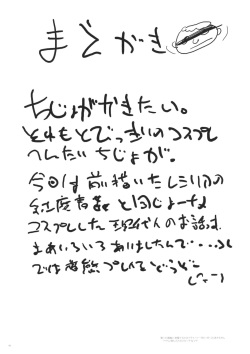 まえがき
ちじょがかきたい。
それもとびっきりのコスプレ
へんたいちじょが。
今回は前描いたレミリアの
紅度高華と同じよーな
コスプレした現代人のお話も
まあいろいろありましたんで・・・
では変態プレイをどうぞー